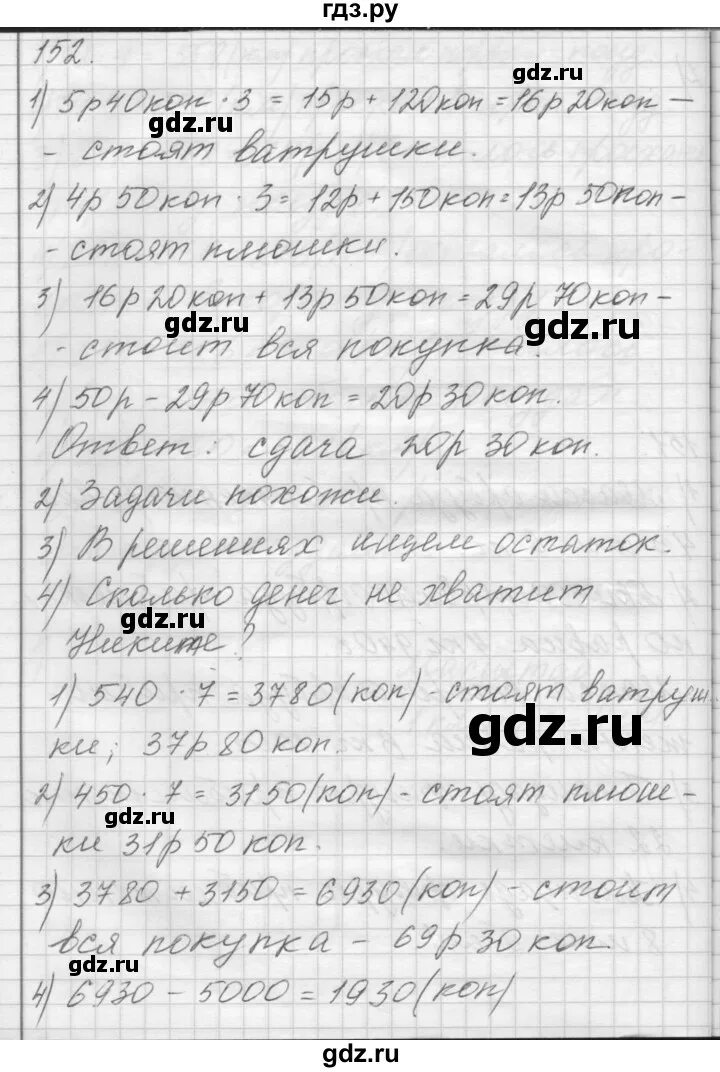 гдз.ру
152.
1) 5р40коп · 3 = 15р + 120коп = 16р 20коп —
- стоят ватрушки.
2) 4р 50коп · 3 = 12р + 150коп = 13р 50коп -
- стоят плюшки.
3) 16р 20коп + 13р 50коп = 29р 70коп -
- стоит вся покупка.
4) 50р - 29р 70коп = 20р 30коп.
Ответ: сдача 20р 30коп.
2) Задачи похожи.
3) В решениях ищем остаток.
4) Сколько денег не хватит
Никите?
1) 540 · 7 = 3780 (коп) - стоят ватруш
ки; 37р 80коп.
2) 450 · 7 = 3150 (коп) - стоят плюш -
ки 31р 50коп.
3) 3780 + 3150 = 6930 (коп) - стоит
вся покупка - 69р 30коп.
4) 6930 - 5000 = 1930 (коп)
gdz.ru
gdz.ru
gdz.ru
gdz.ru
gdz.ru
gdz.ru
gdz.ru
gdz.ru
gdz.ru
gdz.ru
gdz.ru